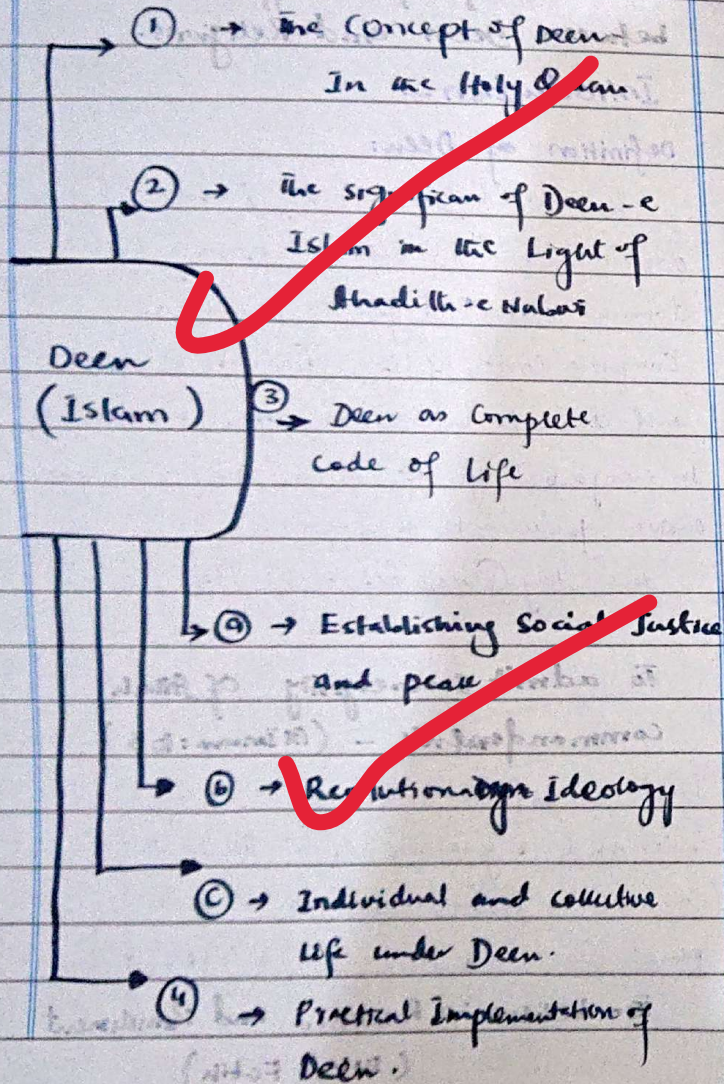 ① → The Concept of Deen
In the Holy Quran
② → The significan of Deen-e
Islam in the Light of
Ahadith-e Nabwi
Deen
(Islam)
③ → Deen as Complete
Code of Life
ⓐ → Establishing Social Justice
and peace
ⓑ → Revolutionary Ideology
Ⓒ → Individual and collective
Life under Deen.
④ → Practical Implementation of
Deen.